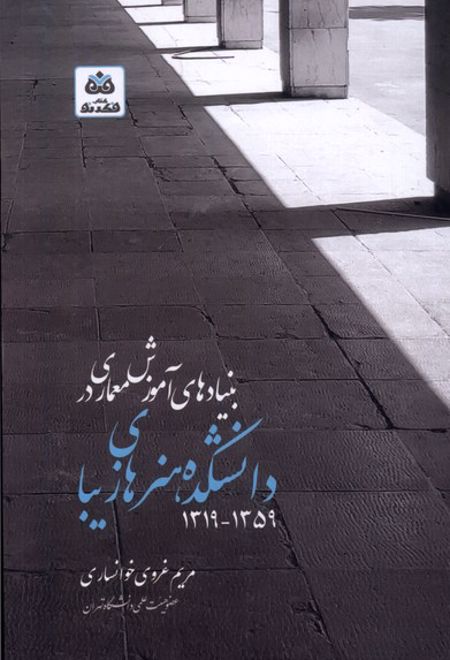 کتاب
فکر نو
بنیادهای آموزش معماری در
دانشکده هنرهای زیبای
۱۳۱۹-۱۳۵۹
مریم غروی خوانساری
عضو هیئت علمی دانشگاه تهران